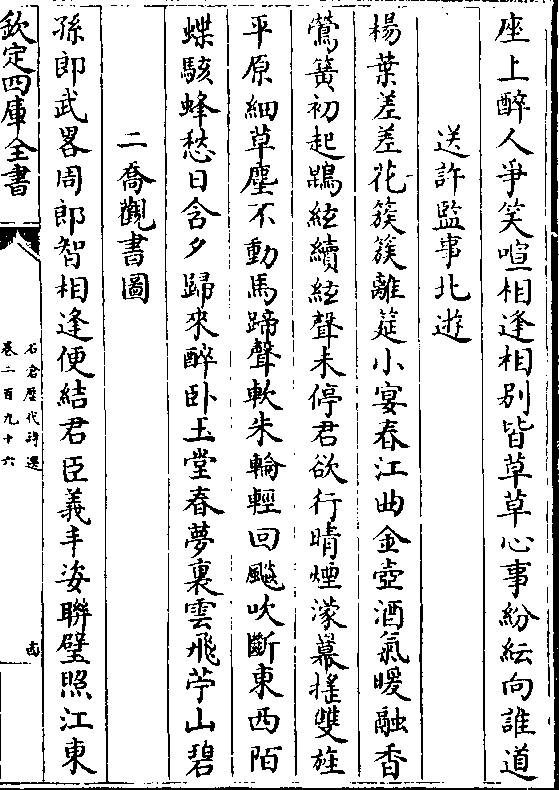 座上醉人爭笑喧相逢相别皆草草心事紛紜向誰道
送許監事北遊
楊葉差差花簇簇離筵小宴春江曲金壺酒氣暖融香
鶯簧初起鵾絃續絃聲未停君欲行晴煙濛冪搖雙旌
平原細草塵不動馬蹄聲軟朱輪輕回飈吹斷東西陌
蝶駭蜂愁日含夕歸來醉卧玉堂春夢裏雲飛苧山碧
二喬觀書圖
孫郎武畧周郎智相逢便結君臣義丰姿聯璧照江東
欽定四庫全書
石倉歴代詩選
卷二百九十六